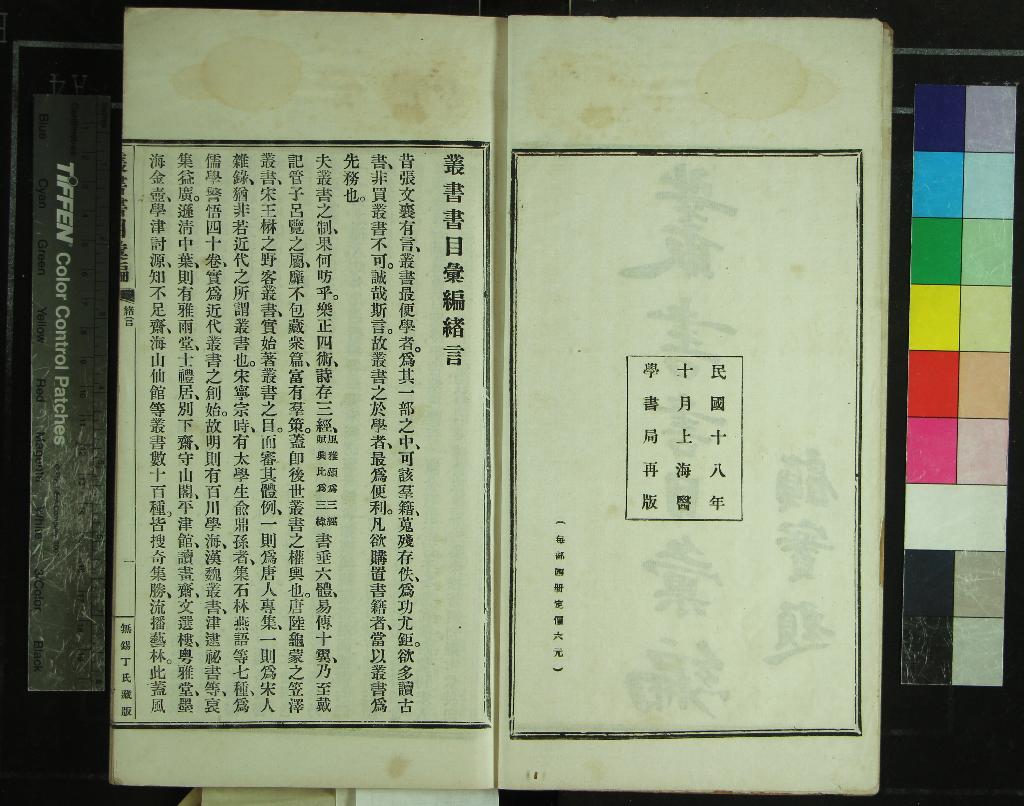 民國十八年
十月上海醫
學書局再版
（每部四册定價六元）
叢書書目彙編緒言
昔張文襄有言、叢書最便學者、爲其一部之中、可該羣籍、蒐殘存佚、爲功尤鉅。欲多讀古
書、非買叢書不可。誠哉斯言。故叢書之於學者、最爲便利。凡欲購置書籍者、當以叢書爲
先務也。
夫叢書之制、果何昉乎。樂正四術、詩存三經、風雅頌爲三經賦興比爲三緯書垂六體、易傳十翼、乃至戴
記管子呂覽之屬、靡不包藏衆篇、富有羣策。蓋卽後世叢書之權輿也。唐陸龜蒙之笠澤
叢書、宋王楙之野客叢書、實始著叢書之目。而審其體例、一則爲唐人專集、一則爲宋人
雜錄、猶非若近代之所謂叢書也。宋寧宗時、有太學生俞鼎孫者、集石林燕語等七種、爲
儒學警悟四十卷、實爲近代叢書之創始。故明則有百川學海、漢魏叢書、津逮祕書等、裒
集益廣。遜淸中葉、則有雅雨堂、士禮居、別下齋、守山閣、平津館、讀畫齋、文選樓、粤雅堂、墨
海金壺、學津討源、知不足齋、海山仙館等叢書數十百種。皆搜奇集勝、流播藝林。此蓋風
緒言
一
無錫丁氏藏版
TIFFEN Color Control Patches
Blue
Cyan
Green
Yellow
Red
Magenta
White
3/Color
Black